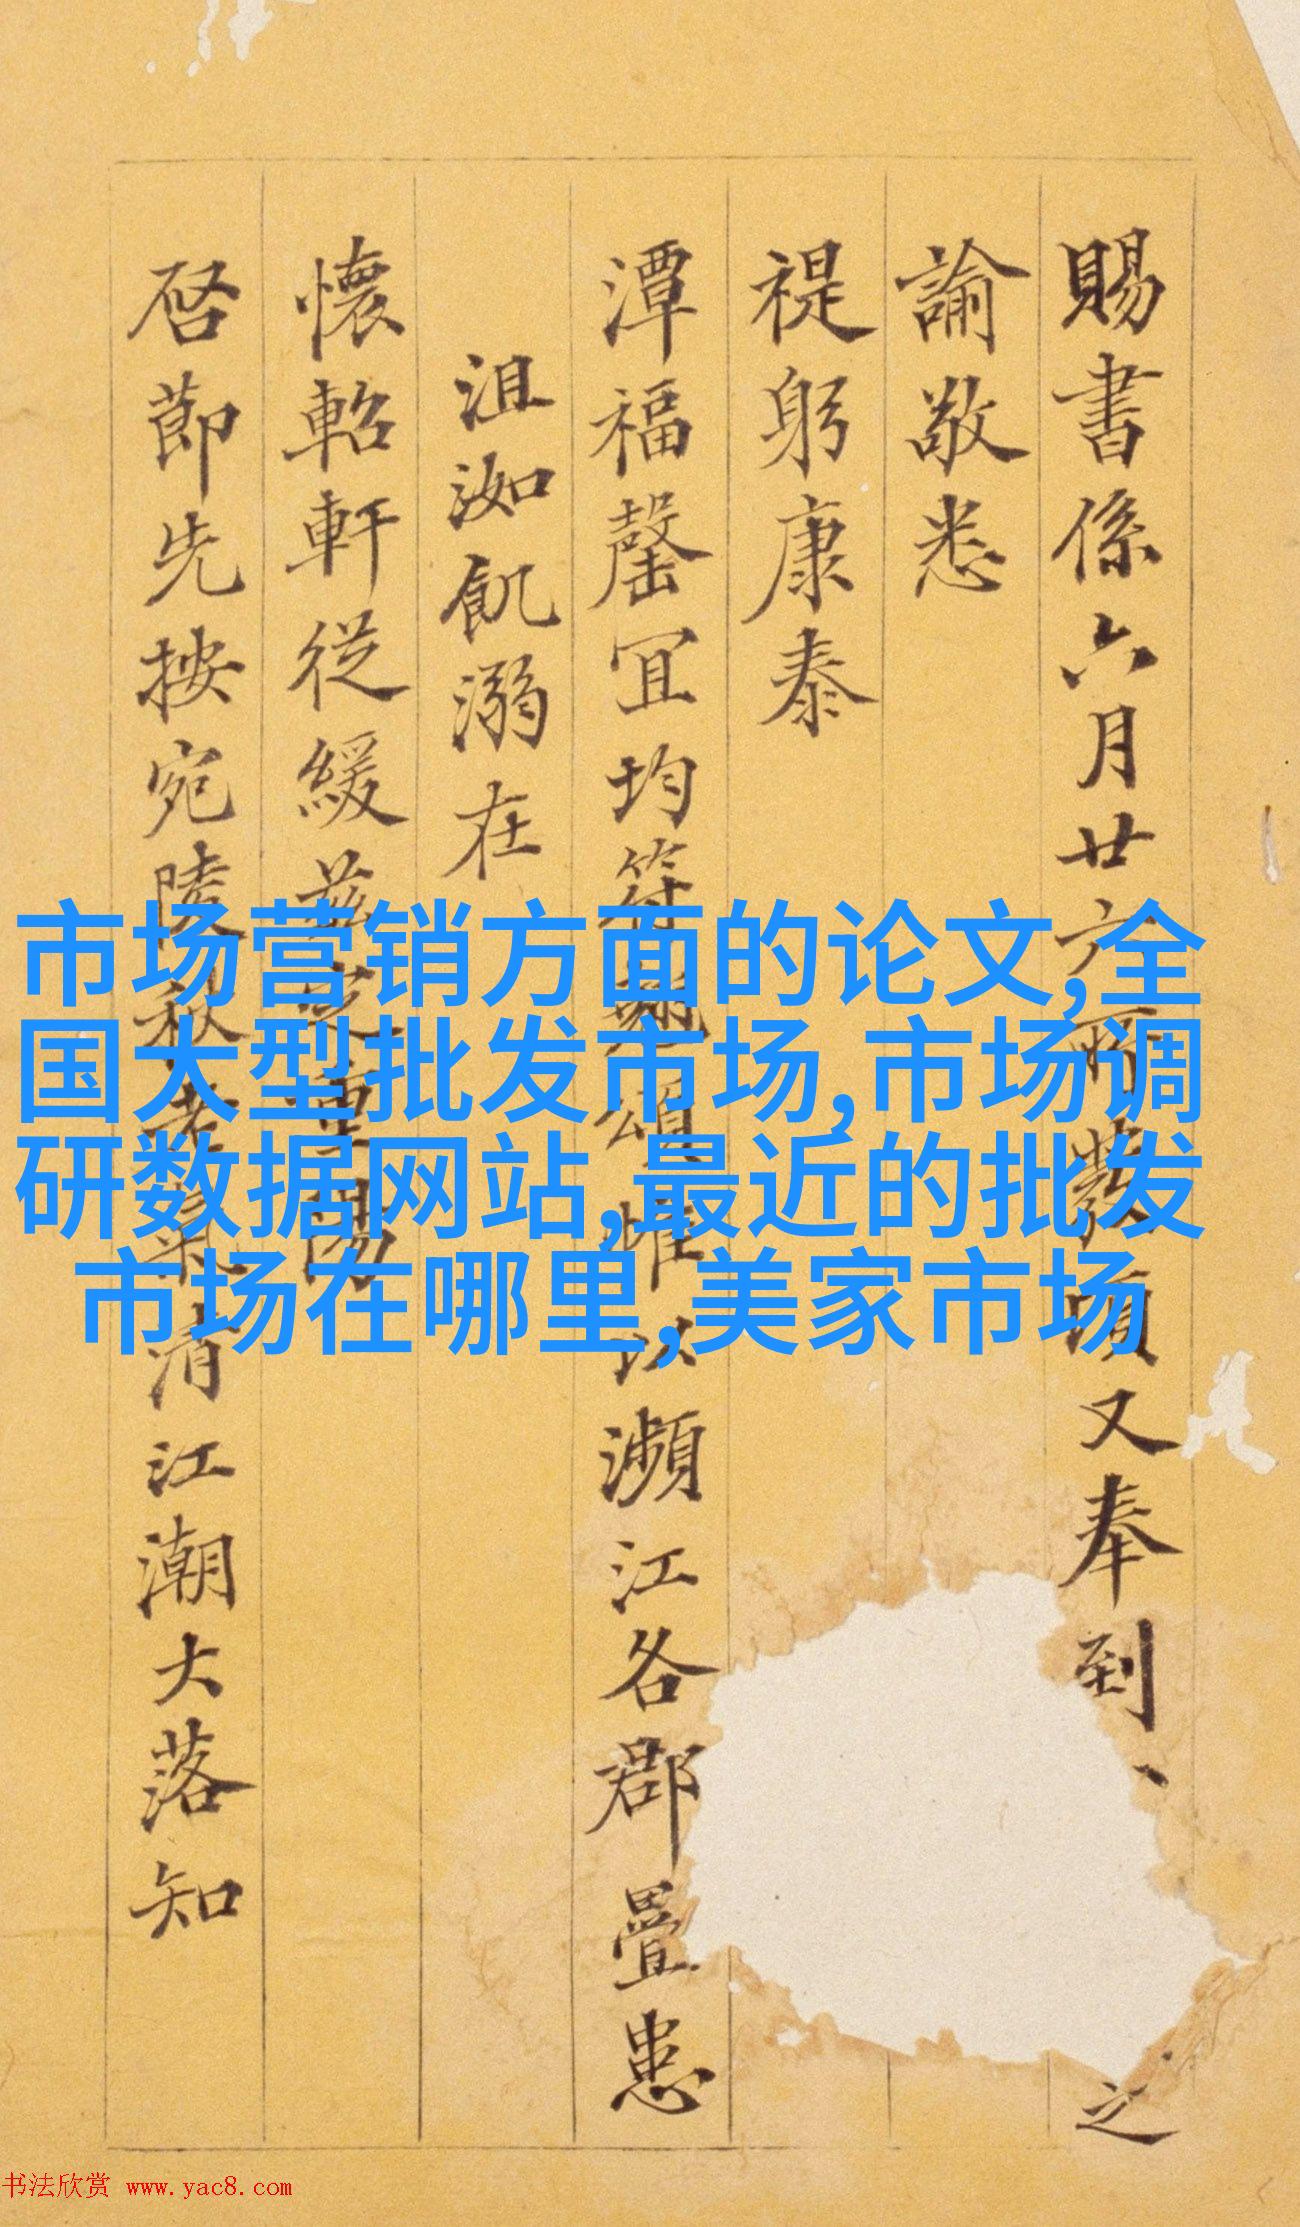 賜書係六月廿六所發頃又奉到
之
諭敬悉
禔躬康泰
潭福罄宜均符頌惟以瀕江各郡疊患
沮洳飢溺在
懷軺軒從緩茲重陽
啓節先按宛陵秋老氣清江潮大落知
市场营销方面的论文,全
国大型批发市场,市场调
研数据网站,最近的批发
市场在哪里,美家市场
书法欣赏 www.yac8.com